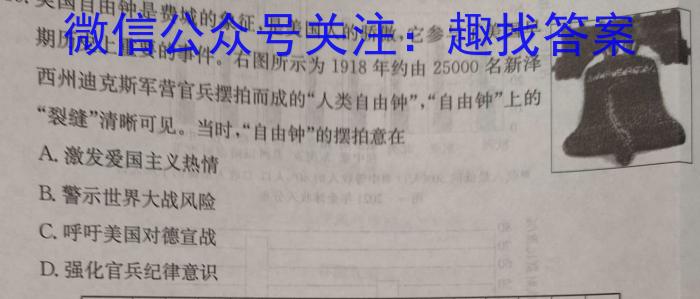 美国自由钟是费城的象征
微信公众号关注：趣找答案
期历史上重要的事件。右图所示为1918年约由25000名新泽
西州迪克斯军营官兵摆拍而成的“人类自由钟”，“自由钟”上的
“裂缝”清晰可见。当时，“自由钟”的摆拍意在
A. 激发爱国主义热情
B. 警示世界大战风险
C. 呼吁美国对德宣战
D. 强化官兵纪律意识